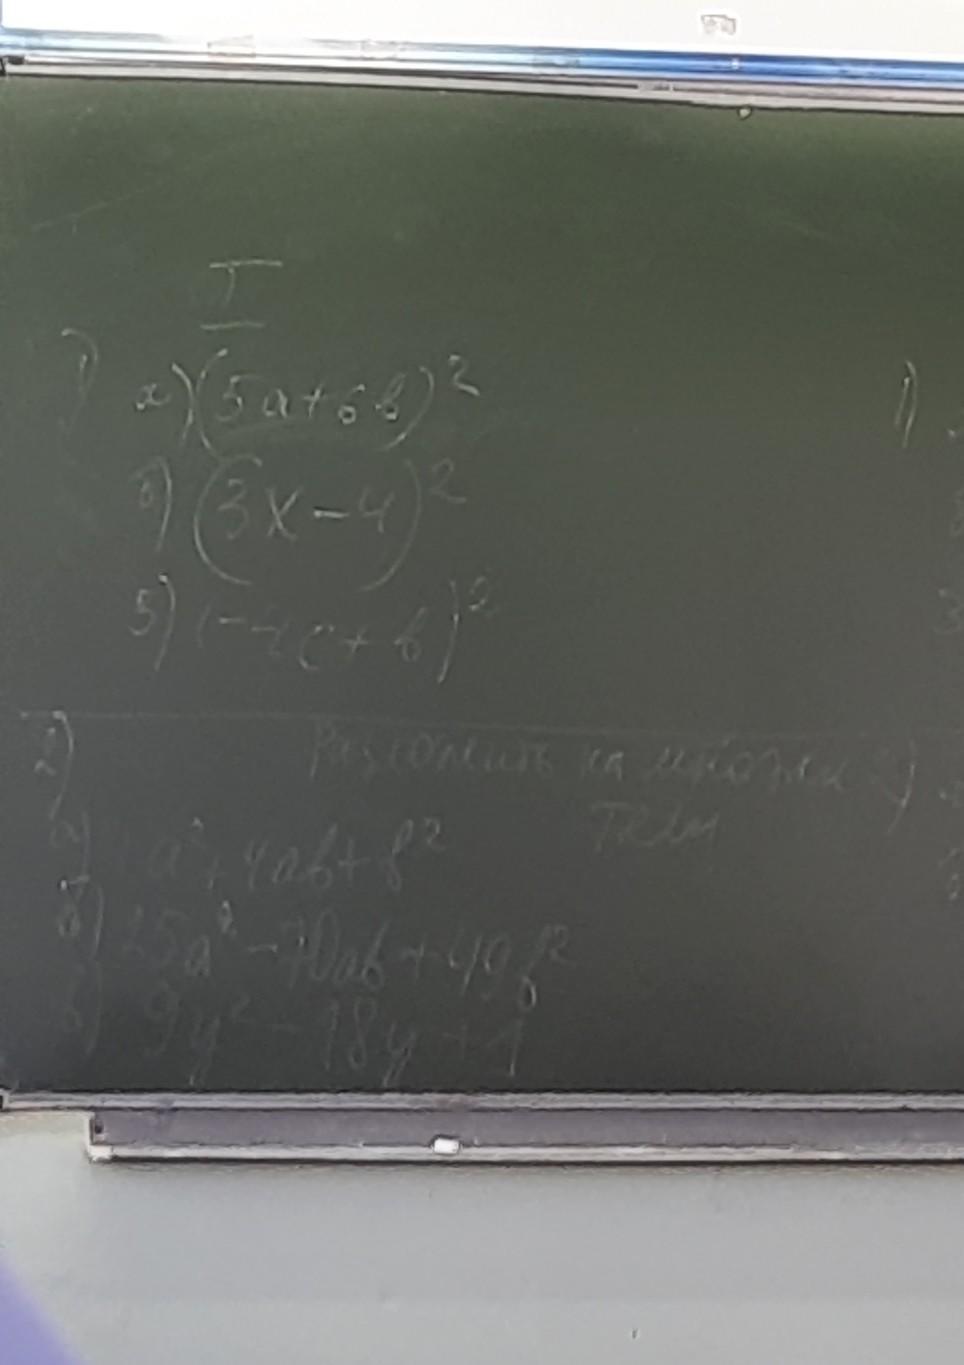 I
1) а) (5a+6b)²
б) (3x-4)²
5) (-4c+b)²
2) Разложить на множи
тели
а) 4a²+4ab+b²
б) 25a²-70ab+49b²
в) 9y²-18y+1
1)
2)